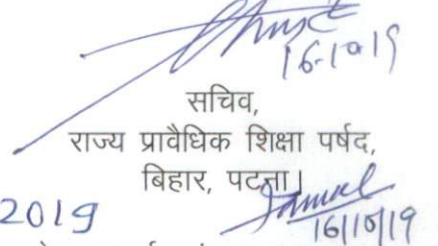 16-10-19
सचिव,
राज्य प्रावैधिक शिक्षा पर्षद,
बिहार, पटना।
2019
16/10/19